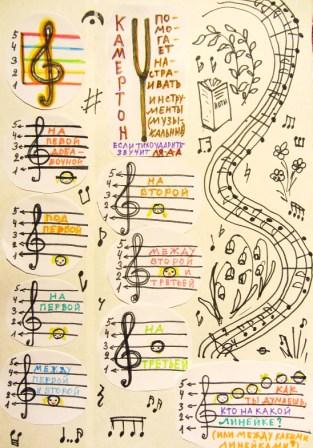 5
4
3
2
1
КАМЕРТОН
ПО-
МО-
ГАЕТ
НА-
СТРА-
ИВАТЬ
ИНСТРУ-
МЕНТЫ
(МУЗЫ-
КАЛЬНЫЕ)
ЕСЛИ ТИХО УДАРИТЬ
ЗВУЧИТ ЛЯ-А-А
НОТЫ
5
4
3
2
1
НА
ПЕРВОЙ
ДОБА-
ВОЧНОЙ
5
4
3
2
1
ПОД
ПЕРВОЙ
5
4
3
2
1
НА
ПЕРВОЙ
5
4
3
2
1
МЕЖДУ
ПЕРВОЙ
И ВТОРОЙ
5
4
3
2
1
НА
ВТОРОЙ
5
4
3
2
1
МЕЖДУ
ВТОРОЙ
И
ТРЕТЬЕЙ
5
4
3
2
1
НА
ТРЕТЬЕЙ
5
4
3
2
1
КАК
ТЫ ДУМАЕШЬ,
КТО НА КАКОЙ
ЛИНЕЙКЕ?
(ИЛИ МЕЖДУ КАКИМИ
ЛИНЕЙКАМИ?)